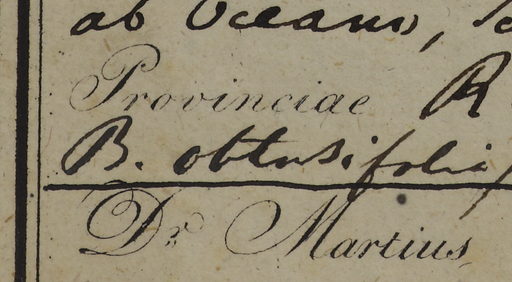 ab Oceano,
Provinciae R
B. obtusifolia
Dr. Martius